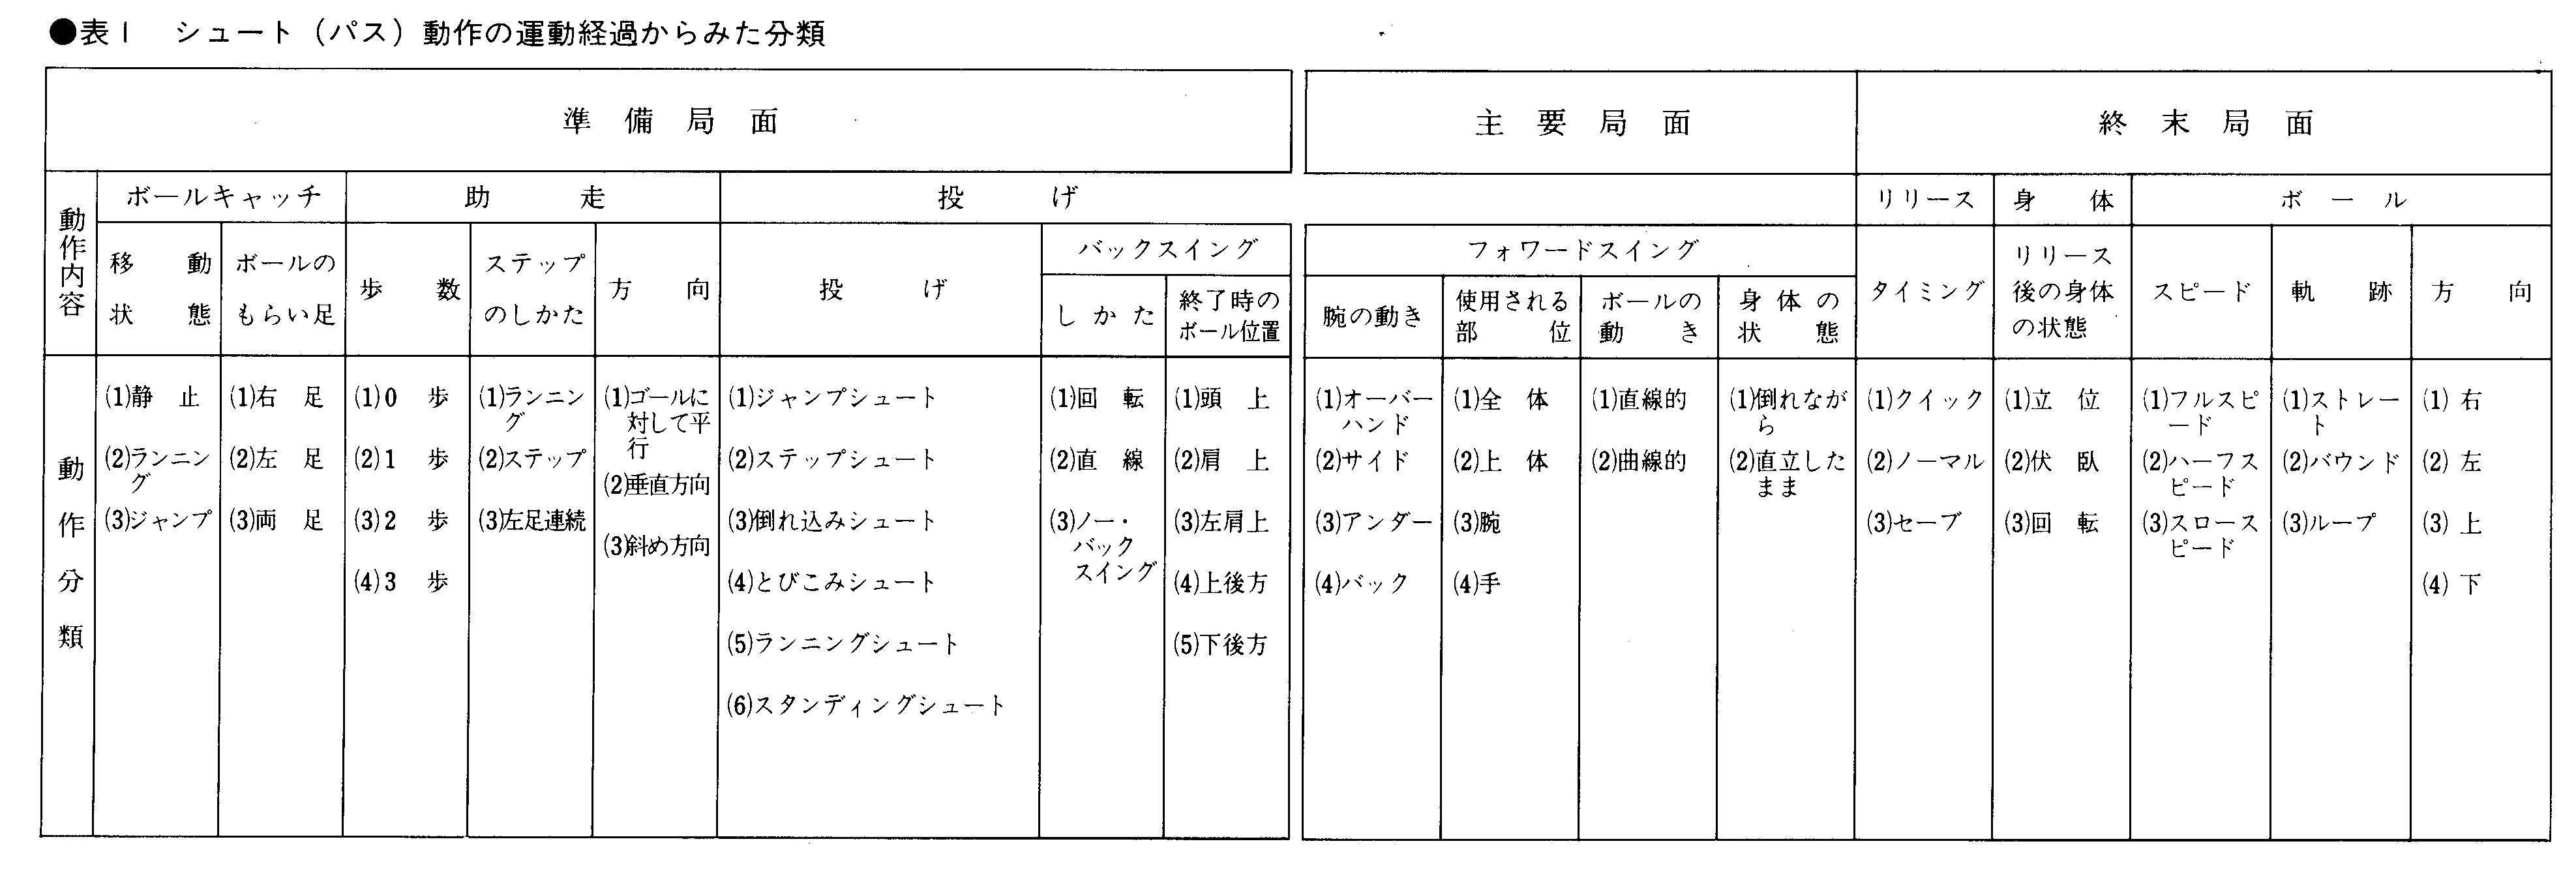 ●表1 シュート（パス）動作の運動経過からみた分類
準備局面
主要局面
終末局面
動作内容
ボールキャッチ
助走
投げ
リリース
身体
ボール
移動
状態
ボールの
もらい足
歩数
ステップ
のしかた
方向
投げ
バックスイング
しかた
終了時の
ボール位置
フォワードスイング
腕の動き
使用される
部位
ボールの
動き
身体の
状態
タイミング
リリース
後の身体
の状態
スピード
軌跡
方向
動作分類
(1)静止
(2)ランニン
グ
(3)ジャンプ
(1)右足
(2)左足
(3)両足
(1)0歩
(2)1歩
(3)2歩
(4)3歩
(1)ランニン
グ
(2)ステップ
(3)左足連続
(1)ゴールに
対して平
行
(2)垂直方向
(3)斜め方向
(1)ジャンプシュート
(2)ステップシュート
(3)倒れ込みシュート
(4)とびこみシュート
(5)ランニングシュート
(6)スタンディングシュート
(1)回転
(2)直線
(3)ノー・
バック
スイング
(1)頭上
(2)肩上
(3)左肩上
(4)上後方
(5)下後方
(1)オーバー
ハンド
(2)サイド
(3)アンダー
(4)バック
(1)全体
(2)上体
(3)腕
(4)手
(1)直線的
(2)曲線的
(1)倒れなが
ら
(2)直立した
まま
(1)クイック
(2)ノーマル
(3)セーブ
(1)立位
(2)伏臥
(3)回転
(1)フルスピ
ード
(2)ハーフス
ピード
(3)スロース
ピード
(1)ストレー
ト
(2)バウンド
(3)ループ
(1)右
(2)左
(3)上
(4)下